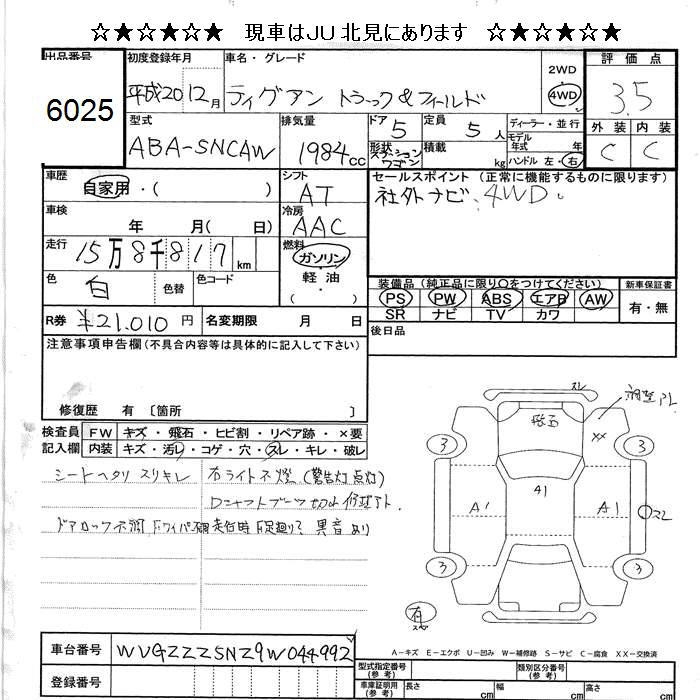 ☆★☆★☆★ 現車はJU北見にあります ☆★☆★☆★
出品番号 初度登録年月 車名・グレード 評価点
6025 平成20 12月 ティグアン トラック&フィールド 2WD 4WD 3.5
型式 排気量 ドア 5 定員 5人 ディーラー・並行 外装 内装
ABA-5NCAW 1984cc 形状 ステーションワゴン 積載 kg モデル年式 年 ハンドル 左・右 C C
車歴 シフト セールスポイント(正常に機能するものに限ります)
自家用・( ) AT 社外ナビ・4WD。
車検 冷房
年 月( 日) AAC
走行 燃料
15万8千817km ガソリン
色 白 色替 色コード 軽油
装備品(純正品に限り○をつけてください) 新車保証書
PS PW ABS エアB AW 有・無
SR ナビ TV カワ
R券 ¥21.010円 名変期限 月 日
後日品
注意事項申告欄(不具合内容等は具体的に記入して下さい)
修復歴 有 〔箇所 〕
検査員 FW キズ・飛石・ヒビ割・リペア跡・×要
記入欄 内装 キズ・汚レ・コゲ・穴・スレ・キレ・破レ
シートヘタリ スリキレ 右ライト不燈(警告灯点灯)
Dシャフトブーツ切れ
走行時F足廻り 異音あり
スレ
飛石 XX
3 3
41
A1 A1 スレ
3 3
有
A-キズ E-エクボ U-凹み W-補修跡 S-サビ C-腐食 XX-交換済
車台番号 WVGZZZ5NZ9W044992
登録番号
型式指定番号(参考) 類別区分番号(参考)
車庫証明用(参考) 長さ cm 幅 cm 高さ cm